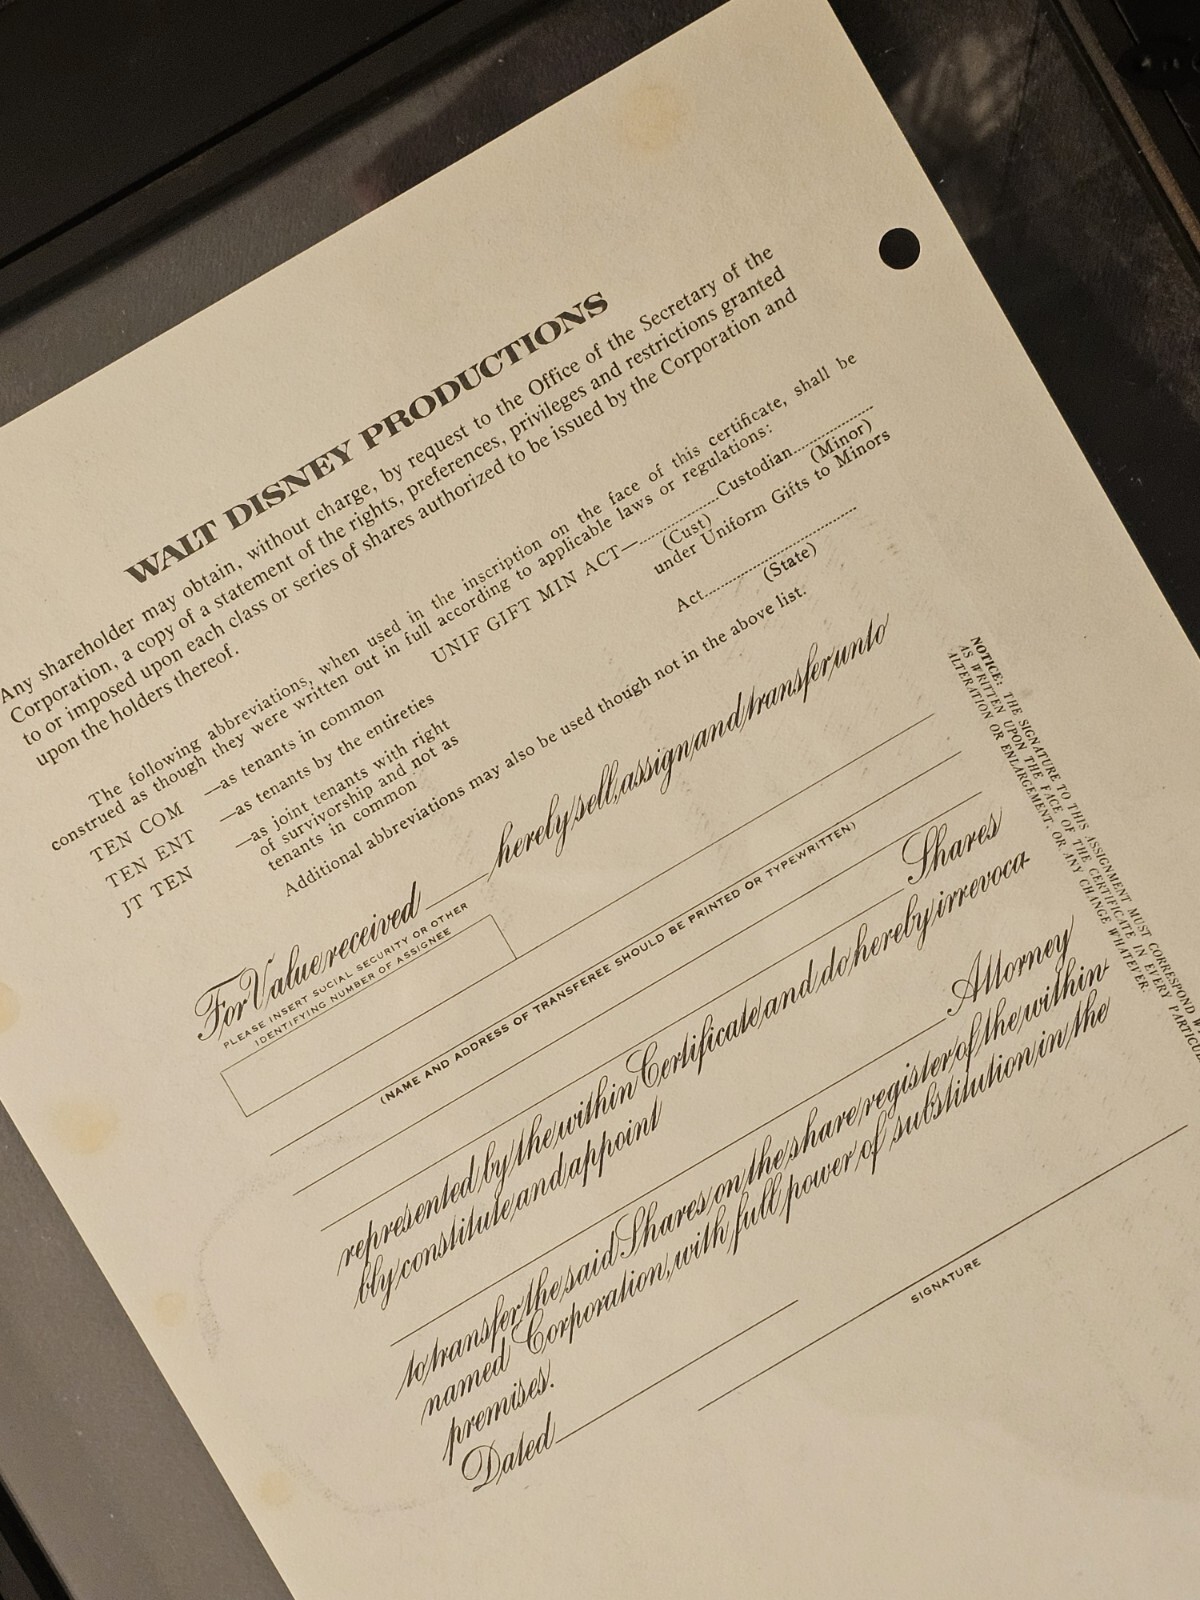 WALT DISNEY PRODUCTIONS
Any shareholder may obtain, without charge, by request to the Office of the Secretary of the
Corporation, a copy of a statement of the rights, preferences, privileges and restrictions granted
to or imposed upon each class or series of shares authorized to be issued by the Corporation and
upon the holders thereof.
The following abbreviations, when used in the inscription on the face of this certificate, shall be
construed as though they were written out in full according to applicable laws or regulations:
TEN COM —as tenants in common
TEN ENT —as tenants by the entireties
JT TEN —as joint tenants with right
of survivorship and not as
tenants in common
UNIF GIFT MIN ACT—..........Custodian..........
(Cust) (Minor)
under Uniform Gifts to Minors
Act..........
(State)
Additional abbreviations may also be used though not in the above list.
For Value received ______ hereby sell, assign and transfer unto
PLEASE INSERT SOCIAL SECURITY OR OTHER
IDENTIFYING NUMBER OF ASSIGNEE
(NAME AND ADDRESS OF TRANSFEREE SHOULD BE PRINTED OR TYPEWRITTEN)
Shares
represented by the within Certificate and do hereby irrevoca-
bly constitute and appoint
Attorney
to transfer the said Shares on the share register of the within-
named Corporation, with full power of substitution in the
premises.
Dated
SIGNATURE
NOTICE: THE SIGNATURE TO THIS ASSIGNMENT MUST CORRESPOND
AS WRITTEN UPON THE FACE OF THE CERTIFICATE IN EVERY
ALTERATION OR ENLARGEMENT, OR ANY CHANGE WHATEVER.